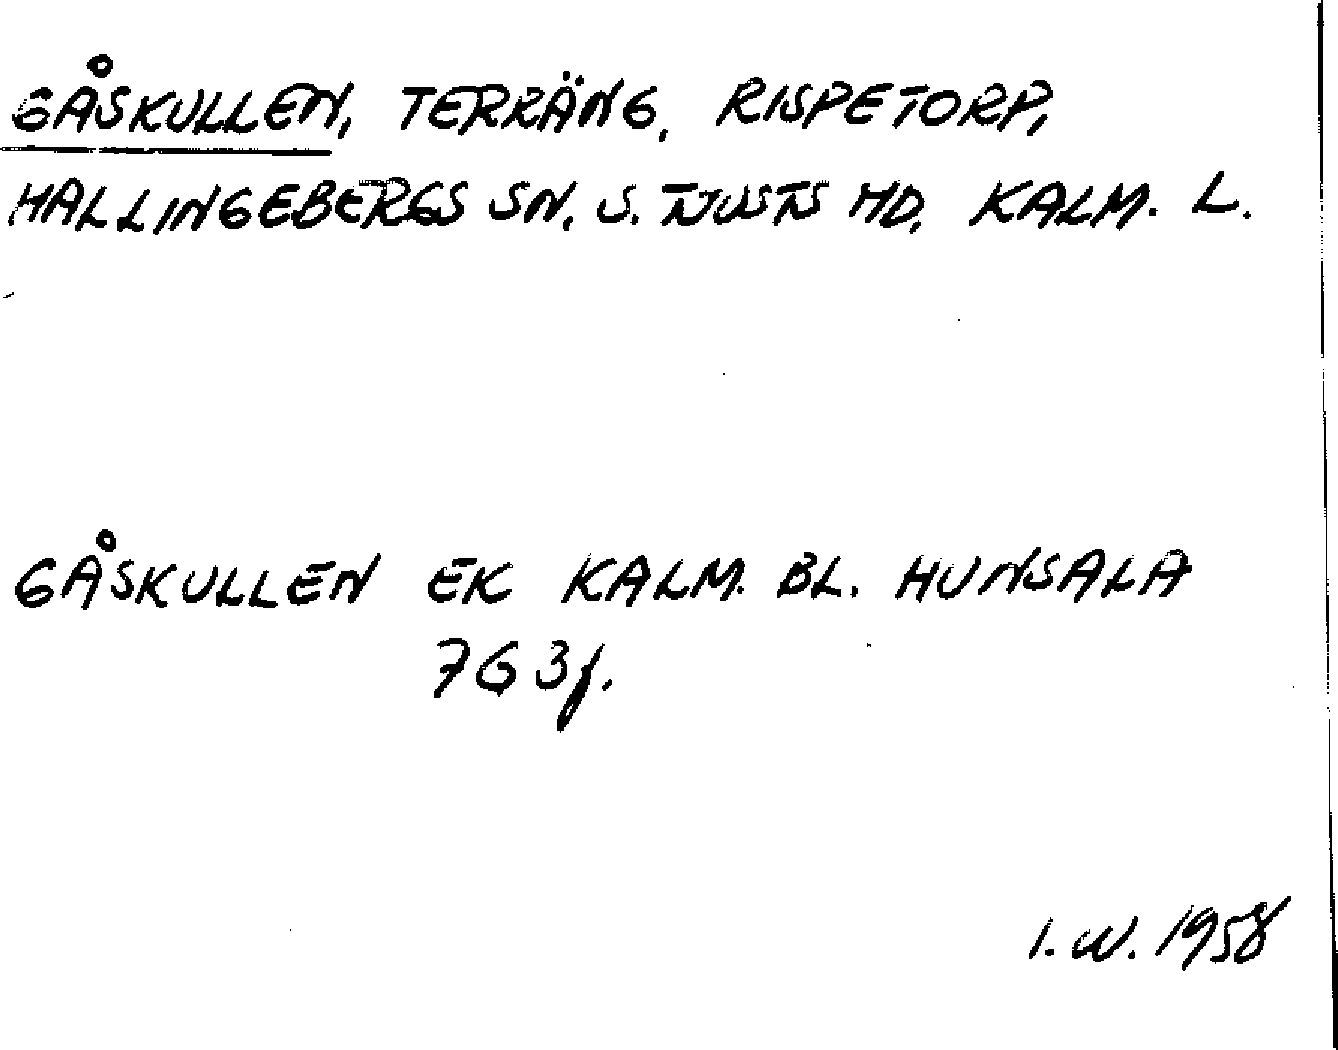 GÅSKULLEN, TERRÄNG, RISPETORP,
HALLINGEBERGS SN, S. TJUSTS HD, KALM. L.
GÅSKULLEN EK KALM. BL. HUNSALA
7G 3f.
I. W. 1958